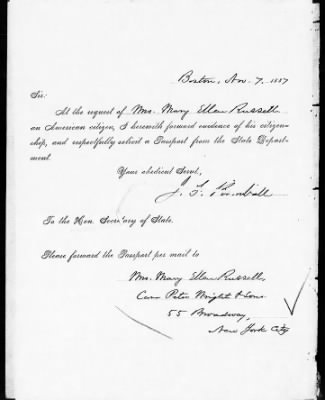 Boston, Nov. 7, 1887
Sir:
At the request of Mrs. Mary Ellen Russell
an American citizen, I herewith forward evidence of his citizen-
ship, and respectfully solicit a Passport from the State Depart-
ment.
Your obedient Servt,
To the Hon. Secretary of State.
Please forward the Passport per mail to
Mrs. Mary Ellen Russell,
Care Peter Wright & Sons.
55 Broadway,
New York City